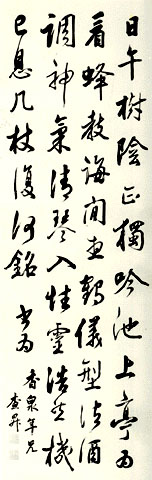 日午樹陰正獨吟池上亭
看蜂教誨閒鶴儀型法酒
調神氣清琴入性靈浩然機
已息几杖復何銘 書為
香泉年兄
查昇